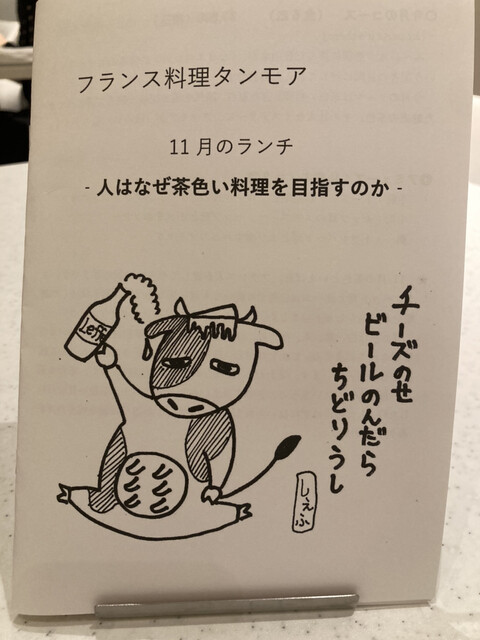 フランス料理タンモア
11月のランチ
- 人はなぜ茶色い料理を目指すのか -
Leff
チーズのせ
ビールのんだら
ちどりうし
しぇふ